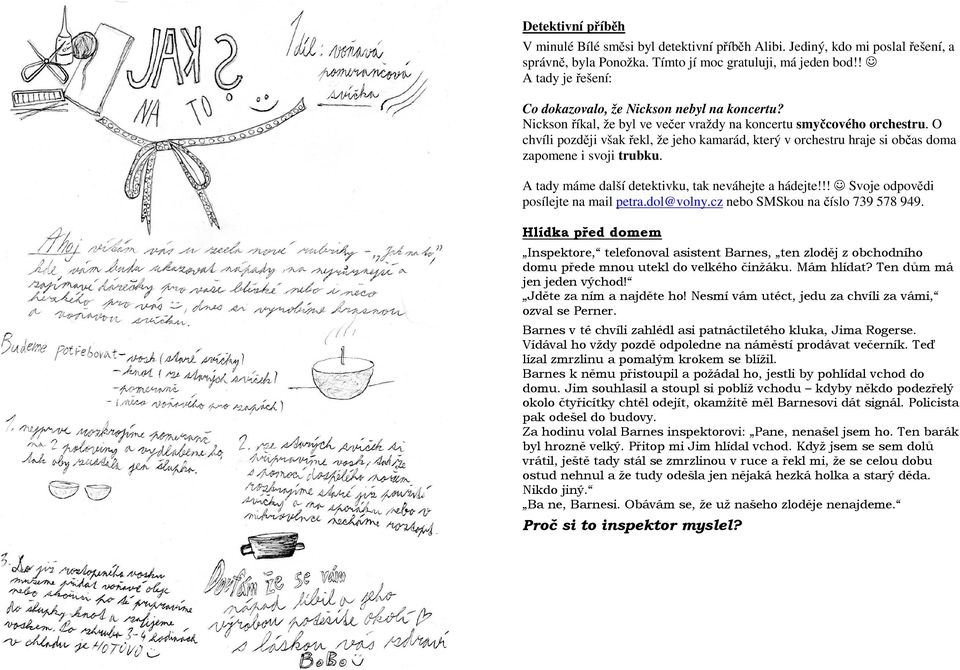 JAK
NA TO?
1 díl: voňavá
pomerančová
svíčka
Ahoj vítám vás u zcela nové rubriky - "Jak na to",
kde vám budu ukazovat nápady na nejrůznější a
zajímavé dárečky pro vaše blízké nebo i něco
hezkého pro vás, dnes si vyrobíme krásnou
a voňavou svíčku.
Budeme potřebovat - vosk (staré svíčky)
- knot (ze starých svíček)
- pomeranč
- (něco voňavého pro zapách)
1. nejprve rozkrojíme pomeranč
na 2 poloviny a vydlabeme ho,
tak aby zůstala jen šlupka.
2. ze starých svíček si
připravíme vosk, tak že
s pomocí dospělého nožem
rozkrájíme staré již použité
svíčky a na sporáku nebo v
mikrovlnce necháme roztopit.
3. Do již roztopeného vosku
můžeme přidat voňavé oleje
nebo skořici po té připravíme
do šlupky knot a zalijeme
voskem. Po zhruba 3-4 hodinách
v chladu je HOTOVO
Doufám že se vám
nápad líbil a jeho
výrobou potěšíte okolí
s láskou vás zdraví
BoBo
Detektivní příběh
V minulé Bílé směsi byl detektivní příběh Alibi. Jediný, kdo mi poslal řešení, a
správně, byla Ponožka. Tímto jí moc gratuluji, má jeden bod!! ☺
A tady je řešení:
Co dokazovalo, že Nickson nebyl na koncertu?
Nickson říkal, že byl ve večer vraždy na koncertu smyčcového orchestru. O
chvíli později však řekl, že jeho kamarád, který v orchestru hraje si občas doma
zapomene i svoji trubku.
A tady máme další detektivku, tak neváhejte a hádejte!!! ☺ Svoje odpovědi
posílejte na mail petra.dol@volny.cz nebo SMSkou na číslo 739 578 949.
Hlídka před domem
„Inspektore,“ telefonoval asistent Barnes, „ten zloděj z obchodního
domu přede mnou utekl do velkého činžáku. Mám hlídat? Ten dům má
jen jeden východ!“
„Jděte za ním a najděte ho! Nesmí vám utéct, jedu za chvíli za vámi,“
ozval se Perner.
Barnes v té chvíli zahlédl asi patnáctiletého kluka, Jima Rogerse.
Vídával ho vždy pozdě odpoledne na náměstí prodávat večerník. Teď
lízal zmrzlinu a pomalým krokem se blížil.
Barnes k němu přistoupil a požádal ho, jestli by pohlídal vchod do
domu. Jim souhlasil a stoupl si poblíž vchodu – kdyby někdo podezřelý
okolo čtyřicítky chtěl odejít, okamžitě měl Barnesovi dát signál. Policista
pak odešel do budovy.
Za hodinu volal Barnes inspektorovi: „Pane, nenašel jsem ho. Ten barák
byl hrozně velký. Přitop mi Jim hlídal vchod. Když jsem se sem dolů
vrátil, ještě tady stál se zmrzlinou v ruce a řekl mi, že se celou dobu
ostud nehnul a že tudy odešla jen nějaká hezká holka a starý děda.
Nikdo jiný.“
„Ba ne, Barnesi. Obávám se, že už našeho zloděje nenajdeme.“
Proč si to inspektor myslel?